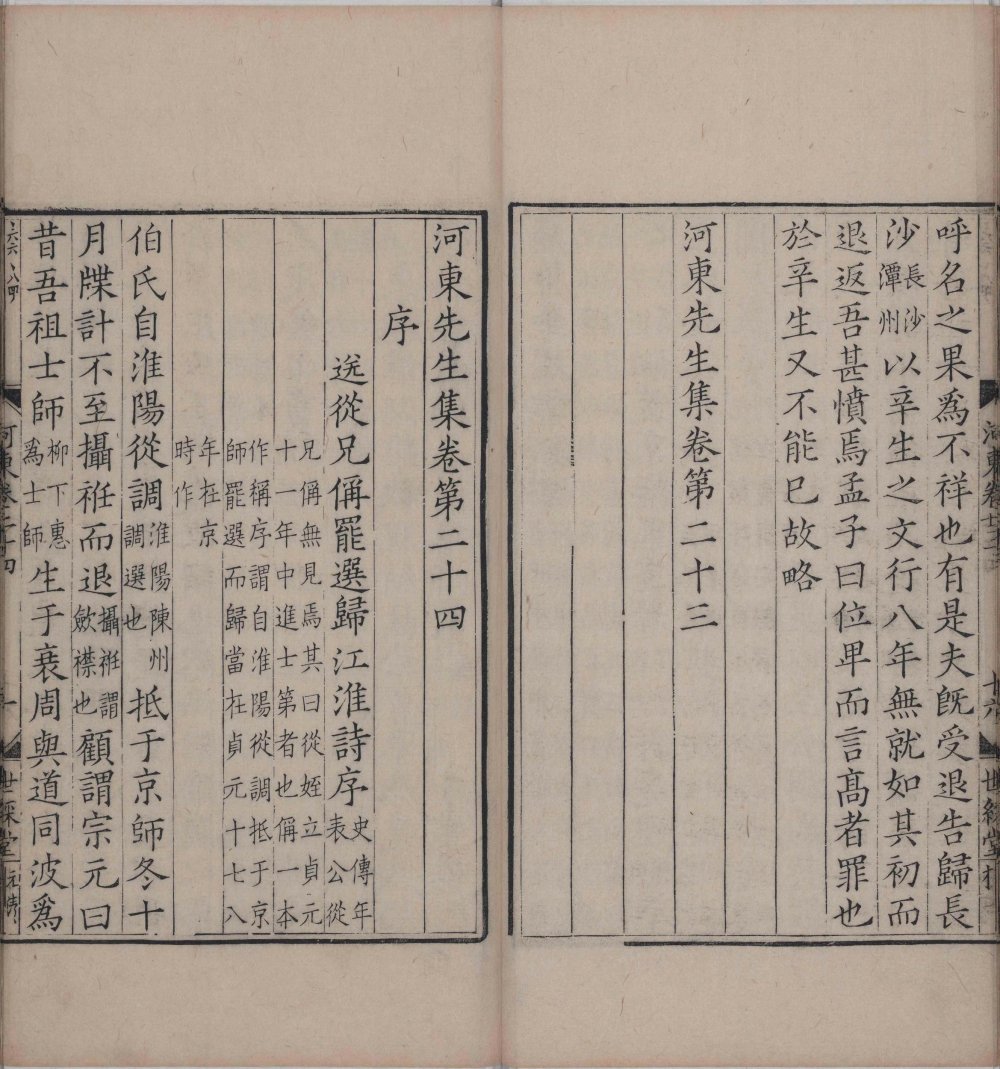 呼名之果爲不祥也有是夫既受退告歸長
沙長沙潭州以辛生之文行八年無就如其初而
退返吾甚憤焉孟子曰位卑而言髙者罪也
於辛生又不能已故略
河東先生集卷第二十三
河東先生集卷第二十四
序
送從兄偁罷選歸江淮詩序史傳年表公從
兄偁無見焉其曰從姪立貞元
十一年中進士第者也偁一本
作稱序謂自淮陽從調抵于京
師罷選而歸當在貞元十七八
年在京
時作
伯氏自淮陽從調淮陽陳州調選也抵于京師冬十
月牒計不至攝袵而退攝袵謂歛襟也顧謂宗元曰
昔吾祖士師柳下惠爲士師生于衰周與道同波爲
河東卷二十四
一
世綵堂